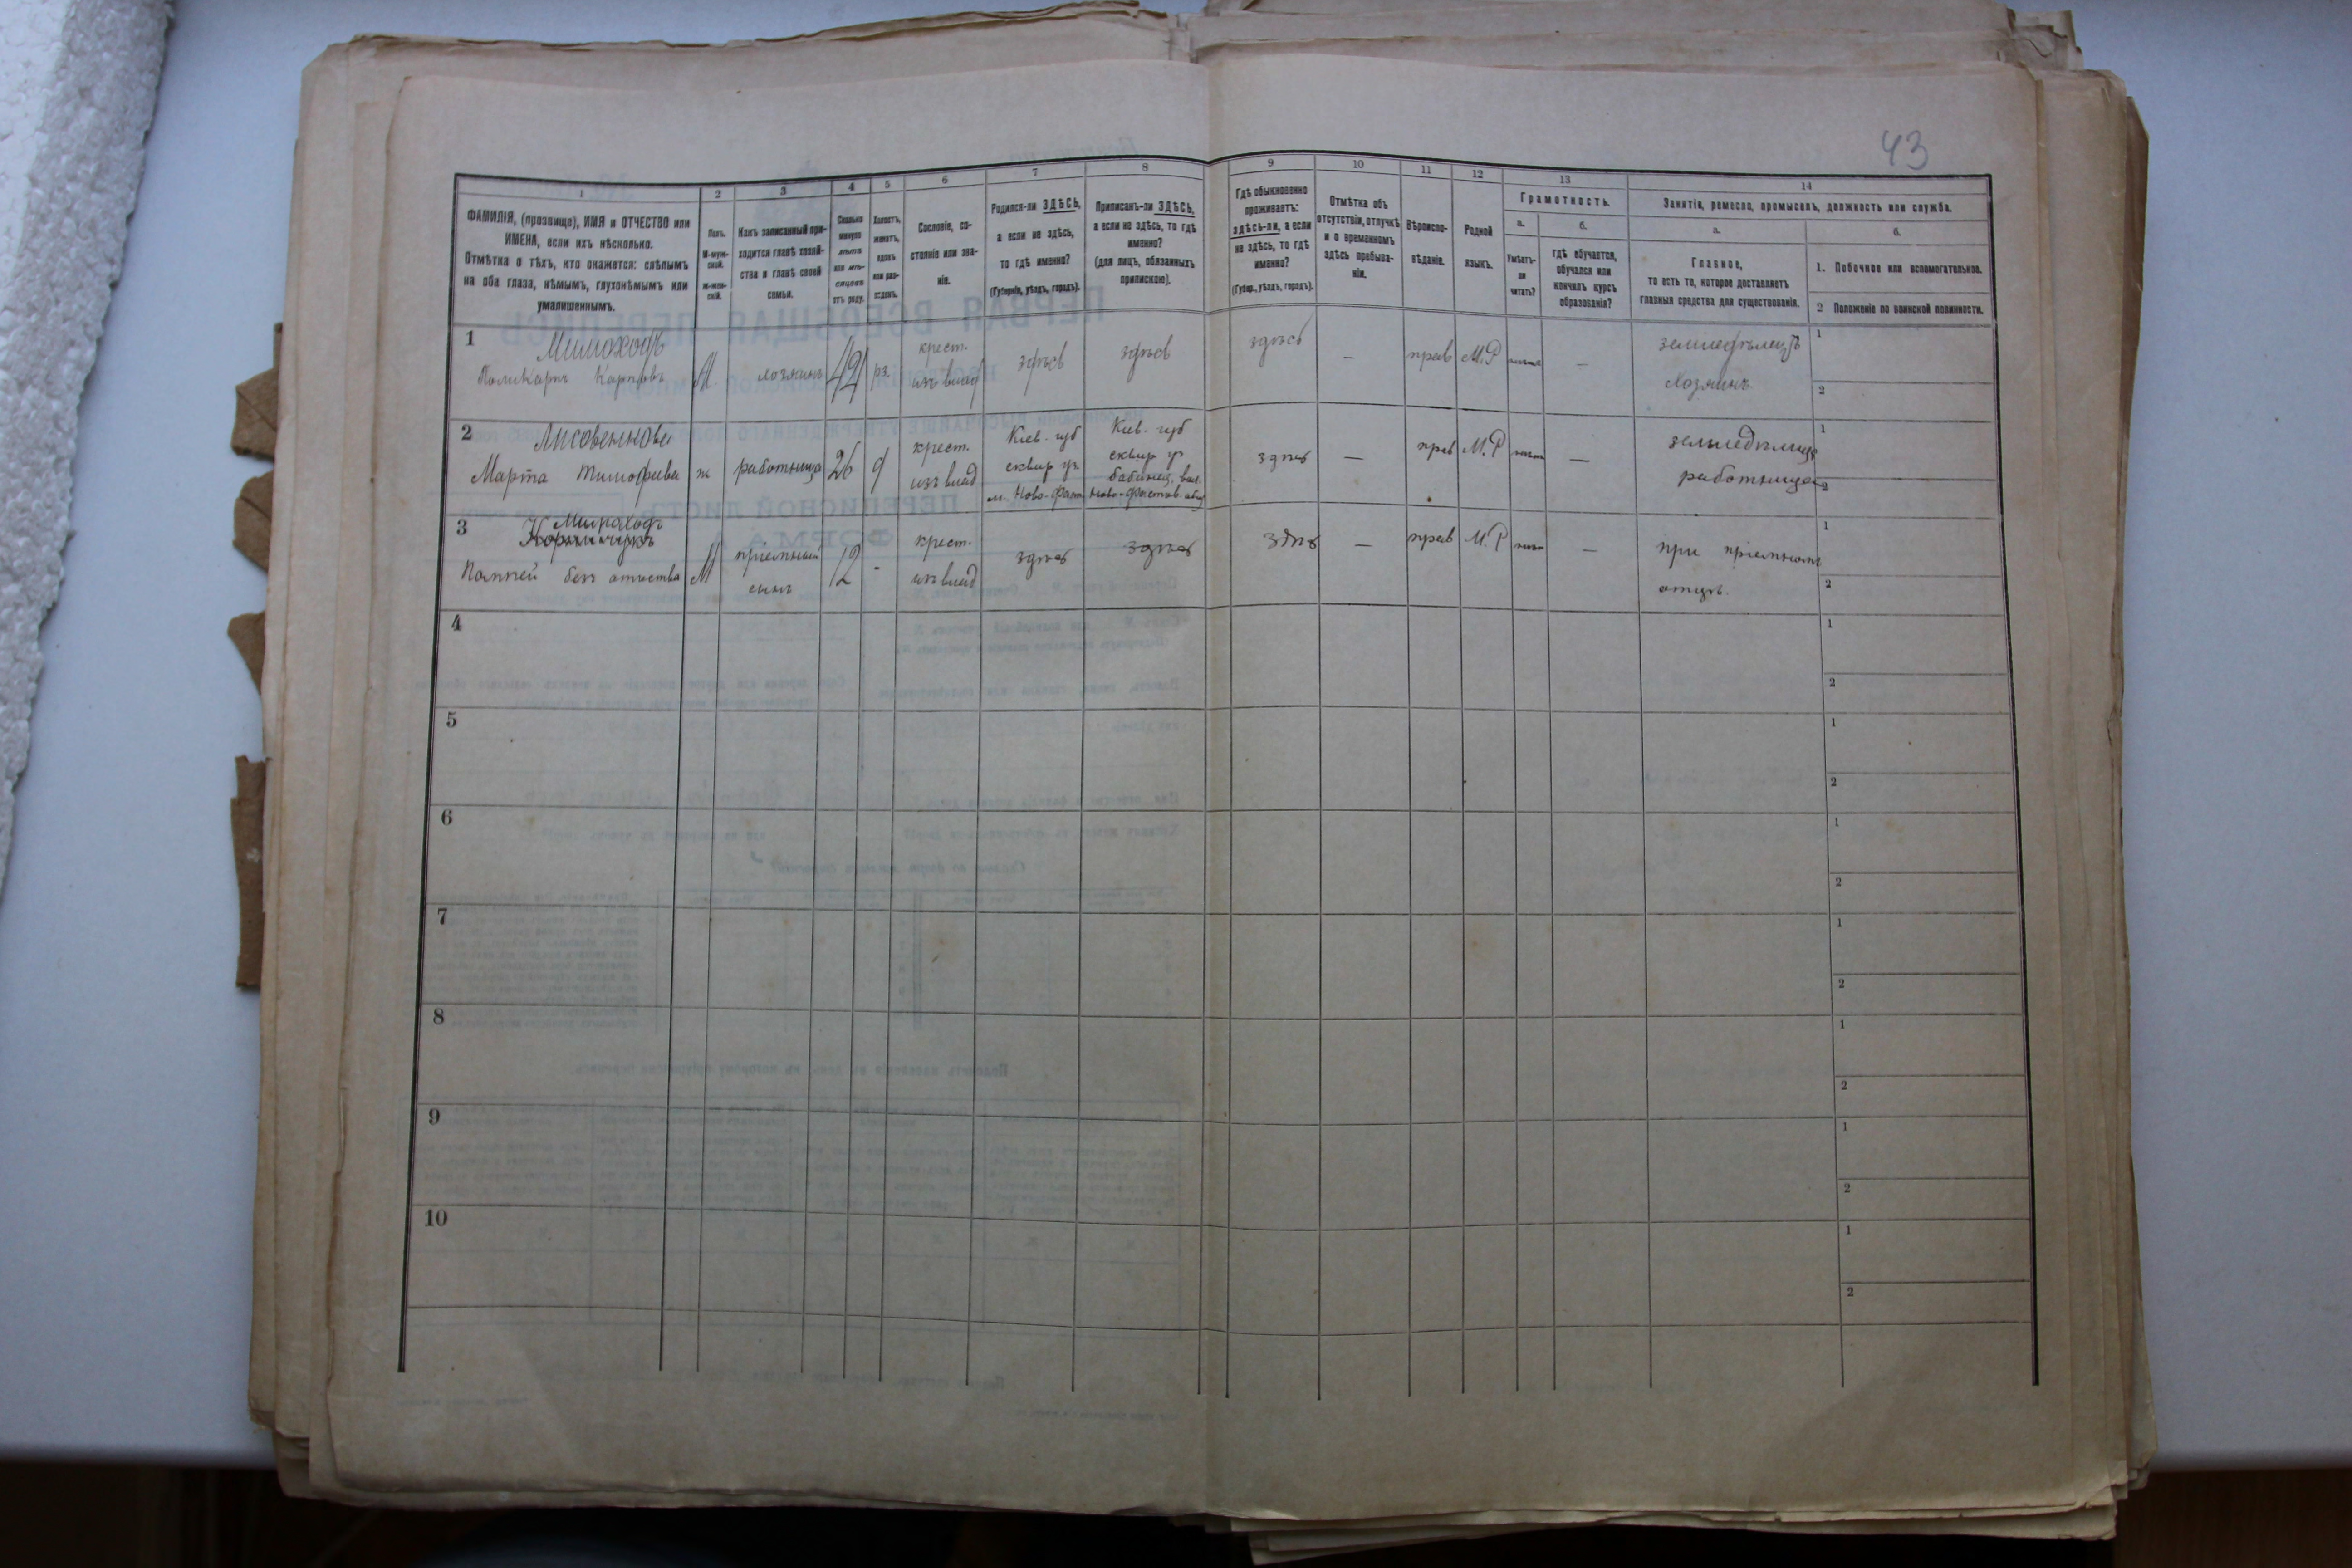 43
1
2
3
4
5
6
7
8
9
10
11
12
13
14
ФАМИЛІЯ, (прозвище), ИМЯ и ОТЧЕСТВО или
ИМЕНА, если ихъ нѣсколько.
Отмѣтка о тѣхъ, кто окажется: слѣпымъ
на оба глаза, нѣмымъ, глухонѣмымъ или
умалишеннымъ.
Полъ.
М-муж-
ской.
Ж-жен-
скій.
Какъ записанный при-
ходится главѣ хозяй-
ства и главѣ своей
семьи.
Сколько
минуло
лѣтъ
или мѣ-
сяцевъ
отъ роду.
Холостъ,
женатъ,
вдовъ
или раз-
веденъ.
Сословіе, со-
стояніе или зва-
ніе.
Родился-ли ЗДѢСЬ,
а если не здѣсь,
то гдѣ именно?
(Губернія, уѣздъ, городъ).
Приписанъ-ли ЗДѢСЬ,
а если не здѣсь, то гдѣ
именно?
(для лицъ, обязанныхъ
припискою).
Гдѣ обыкновенно
проживаетъ:
здѣсь-ли, а если
не здѣсь, то гдѣ
именно?
(Губер., уѣздъ, городъ).
Отмѣтка объ
отсутствіи, отлучкѣ
и о временномъ
здѣсь пребыва-
ніи.
Вѣроиспо-
вѣданіе.
Родной
языкъ.
Грамотность.
а.
Умѣетъ-
ли
читать?
б.
гдѣ обучается,
обучался или
кончилъ курсъ
образованія?
Занятіе, ремесло, промыселъ, должность или служба.
а.
Главное,
то есть то, которое доставляетъ
главныя средства для существованія.
б.
1. Побочное или вспомогательное.
2 Положеніе по воинской повинности.
1
Мимоходъ
Поликарпъ Карповъ
М.
хозяинъ
42
крест.
изъ влад
здѣсь
здѣсь
здѣсь
—
прав
М.Р
—
земледѣлецъ
хозяинъ
1
2
2
Лисовенкова
Марта Тимофѣева
ж
работница
26
д
крест.
изъ влад
Кіев. губ
сквир у.
Кіев. губ
сквир у.
здѣсь
—
прав
М.Р
—
работница
1
2
3
Мимоходъ
Пантей безъ отчества
М
пріемный
сынъ
12
-
крест.
изъ влад
здѣсь
здѣсь
здѣсь
—
прав
М.Р
—
при пріемномъ
отцѣ.
1
2
4
1
2
5
1
2
6
1
2
7
1
2
8
1
2
9
1
2
10
1
2